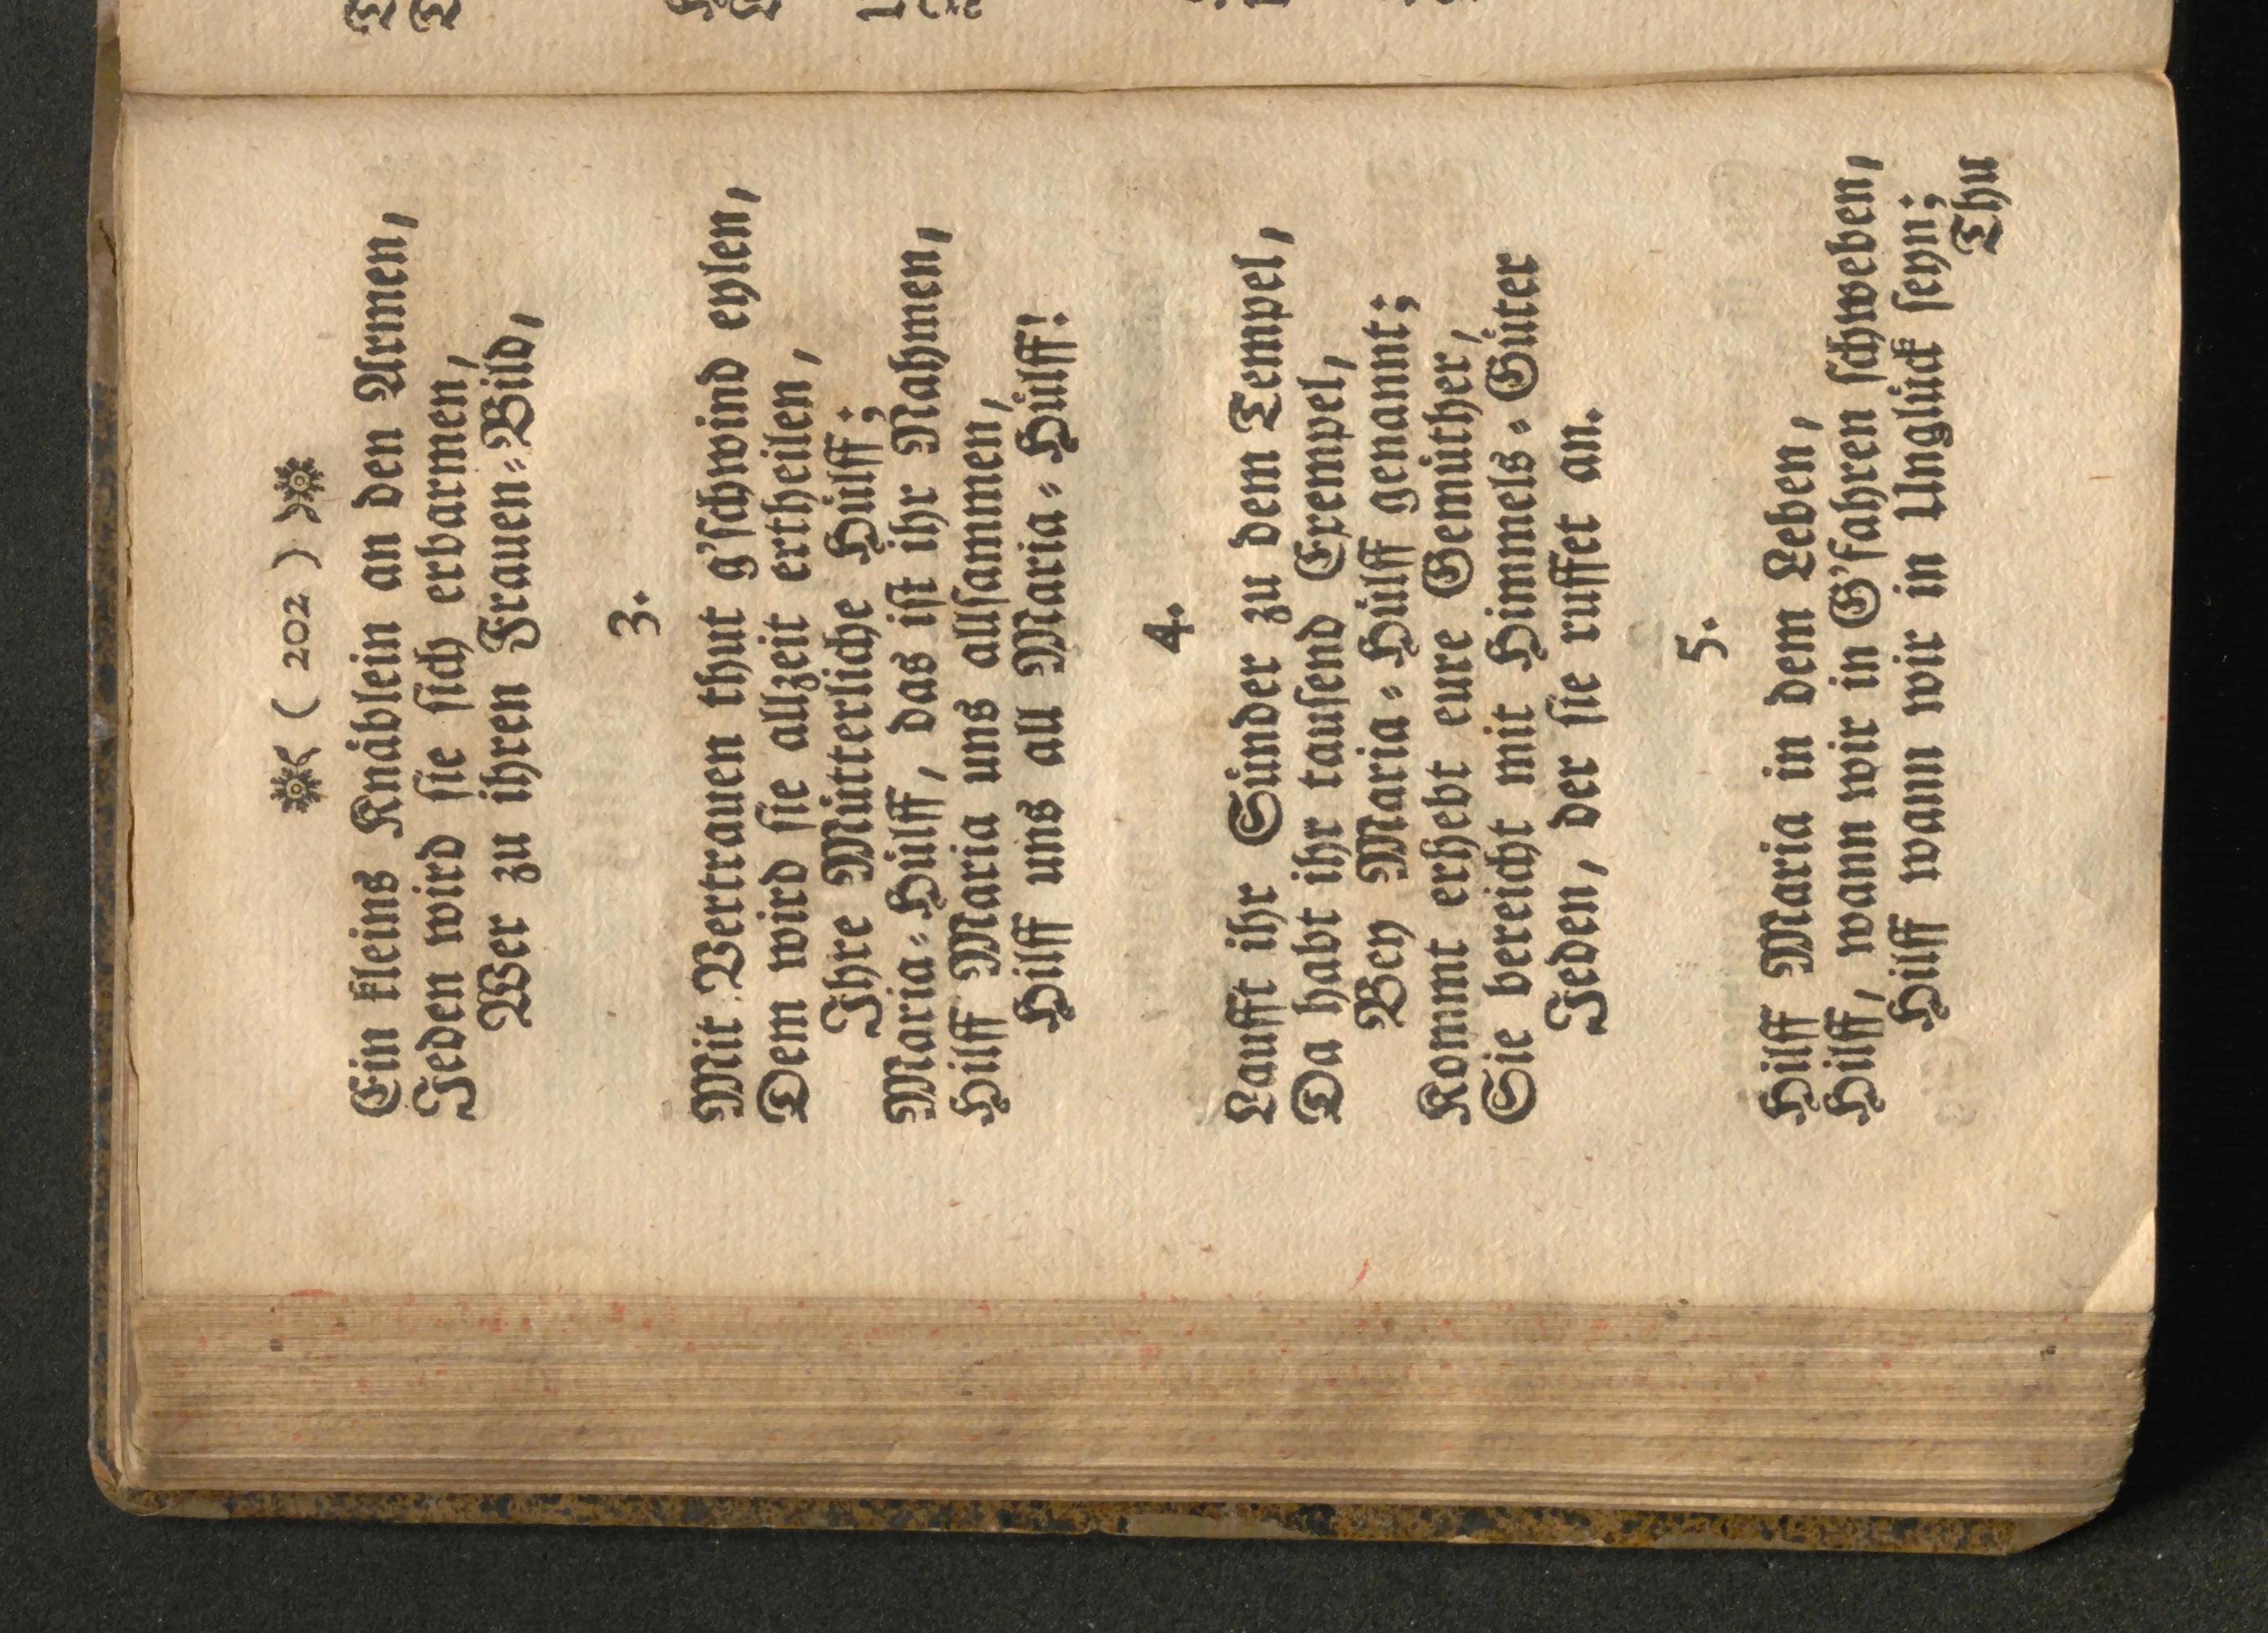 ( 202 )
Ein kleins Knäblein an den Armen,
Jeden wird sie sich erbarmen,
Wer zu ihren Frauen-Bild,
3.
Mit Vertrauen thut g'schwind eylen,
Dem wird sie allzeit ertheilen,
Ihre Mütterliche Hülff;
Maria-Hülff, das ist ihr Nahmen,
Hilff Maria uns allsammen,
Hilff uns all Maria-Hülff!
4.
Laufft ihr Sünder zu dem Tempel,
Da habt ihr tausend Exempel,
Bey Maria-Hülff genannt;
Kommt erhebt eure Gemüther,
Sie bereicht mit Himmels-Güter
Jeden, der sie ruffet an.
5.
Hilff Maria in dem Leben,
Hilff, wann wir in G'fahren schweben,
Hilff wann wir in Unglück seyn;
Thu